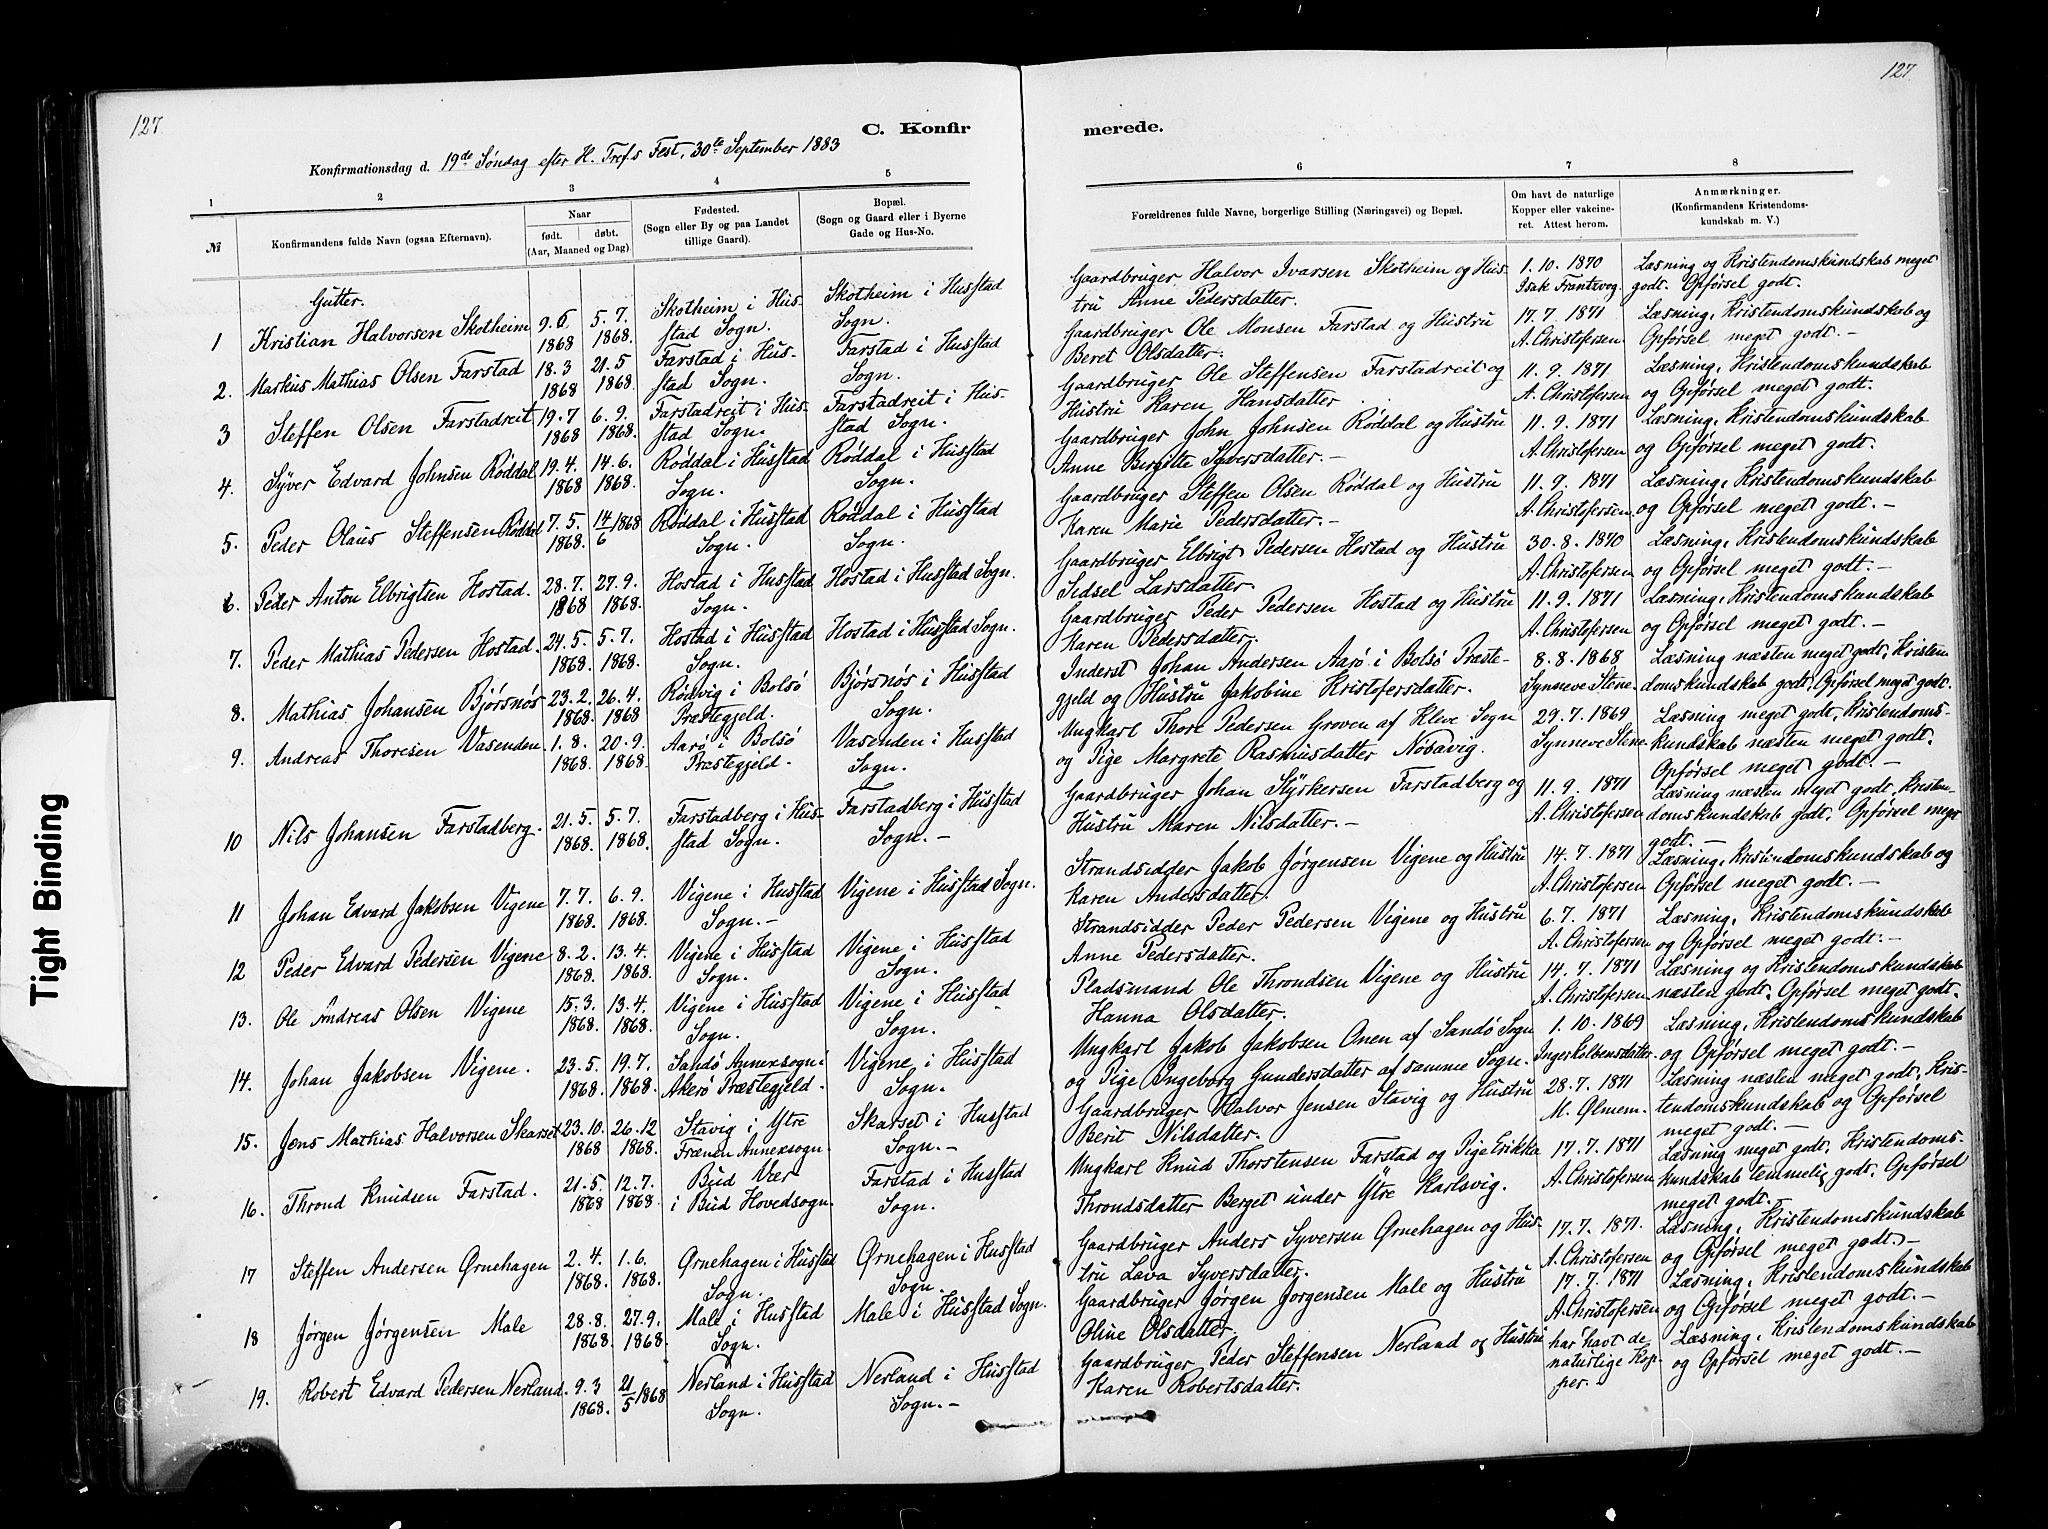 127
127
C. Konfir
merede.
Konfirmationsdag d. 19de Søndag efter H. Tref.s Fest, 30te September 1883
1
2
3
4
5
6
7
8
№
Konfirmandens fulde Navn (ogsaa Efternavn).
Naar
født. døbt.
(Aar, Maaned og Dag)
Fødested.
(Sogn eller By og paa Landet
tillige Gaard).
Bopæl.
(Sogn og Gaard eller i Byerne
Gade og Hus-No.
Forældrenes fulde Navne, borgerlige Stilling (Næringsvei) og Bopæl.
Om havt de naturlige
Kopper eller vakcine-
ret. Attest herom.
Anmærkninger.
(Konfirmandens Kristendoms-
kundskab m. V.)
Gutter.
1 Kristian Halvorsen Skotheim 9.6 1868 5.7. 1868. Skotheim i Hus-
stad Sogn. Skotheim i Husstad
Sogn. Gaardbruger Halvor Ivarsen Skotheim og Hus-
tru Anne Pedersdatter. 1.10.1870
Isak Frantsvog. Læsning og Kristendomskundskab meget
godt. Opførsel godt.
2. Markus Mathias Olsen Farstad 18.3 1868 21.5 1868. Farstad i Hus-
stad Sogn. Farstad i Husstad
Sogn. Gaardbruger Ole Monsen Farstad og Hustru
Beret Olsdatter. 17.7.1871
A. Christofersen Læsning, Kristendomskundskab og
Opførsel meget godt.–
3 Steffen Olsen Farstadreit 19.7 1868 6.9. 1868. Farstadreit i Hus-
stad Sogn. Farstadreit i Hus-
stad Sogn. Gaardbruger Ole Steffensen Farstadreit og
Hustru Karen Hansdatter 11.9.1871
A. Christofersen Læsning, Kristendomskundskab
og Opførsel meget godt.
4. Syver Edvard Johnsen Røddal 19.4. 1868 14.6. 1868. Røddal i Husstad
Sogn. Røddal i Husstad
Sogn. Gaardbruger John Johnsen Røddal og Hustru
Anne Bergitte Syversdatter.– 11.9.1871
A. Christofersen Læsning, Kristendomskundskab
og Opførsel meget godt.
5. Peder Olaus Steffensen Røddal 7.5. 1868. 14/6 1868 Røddal i Husstad
Sogn. Røddal i Husstad
Sogn. Gaardbruger Steffen Olsen Røddal og Hustru
Karen Marie Pedersdatter.– 11.9.1871
A. Christofersen. Læsning, Kristendomskundskab
og Opførsel meget godt.–
6. Peder Anton Elbrigtsen Hostad. 28.7. 1868 27.9. 1868. Hostad i Husstad
Sogn. Hostad i Husstad Sogn. Gaardbruger Elbrigt Pedersen Hostad og Hustru
Sedsel Larsdatter 30.8.1870
A. Christofersen Læsning, Kristendomskundskab
og Opførsel meget godt.–
7. Peder Mathias Pedersen Hostad. 24.5. 1868. 5.7. 1868. Hostad i Husstad
Sogn. Hostad i Husstad Sogn. Gaardbruger Peder Pedersen Hostad og Hustru
Karen Pedersdatter. 11.9.1871
A. Christofersen Læsning, Kristendomskundskab
og Opførsel meget godt.–
8. Mathias Johansen Bjørsnøs 23.2. 1868. 26.4. 1868 Rødvig i Bolsø
Præstegjeld. Bjørsnøs i Husstad
Sogn. Inderst Johan Andersen Aarø i Bolsø Præste-
gjeld og Hustru Jakobine Kristofersdatter. 8.8.1868
Synneve Stene Læsning næsten meget godt, Kristen
domskundskab godt, Opførsel meget godt.
9. Andreas Thoresen Vasenden 1.8. 1868. 20.9. 1868. Aarø i Bolsø
Præstegjeld. Vasenden i Husstad
Sogn. Ungkarl Thore Pedersen Groven af Kleve Sogn
og Pige Margrete Rasmusdatter Nøsavig. 29.7.1869
Synneve Stene Læsning meget godt, Kristendoms-
kundskab næsten meget godt.
Opførsel meget godt.–
10 Nils Johansen Farstadberg. 21.5. 1868. 5.7. 1868. Farstadberg i Hus-
stad Sogn. Farstadberg i Husstad
Sogn.– Gaardbruger Johan Styrkersen Farstadberg og
Hustru Maren Nilsdatter.– 11.9.1871
A. Christofersen Læsning næsten meget godt, Kristen-
domskundskab godt, Opførsel meget
godt.–
11 Johan Edvard Jakobsen Vigene 7.7. 1868. 6.9. 1868. Vigene i Husstad
Sogn.– Vigene i Husstad Sogn. Strandsidder Jakob Jørgensen Vigene og Hustru
Karen Andersdatter. 14.7.1871
A. Christofersen Læsning, Kristendomskundskab og
Opførsel meget godt.–
12 Peder Edvard Pedersen Vigene 8.2. 1868. 13.4. 1868. Vigene i Husstad
Sogn. Vigene i Husstad
Sogn. Strandsidder Peder Pedersen Vigene og Hustru
Anne Pedersdatter. 6.7.1871
A. Christofersen Læsning, Kristendomskundskab
og Opførsel meget godt.–
13. Ole Andreas Olsen Vigene 15.3. 1868. 13.4. 1868. Vigene i Husstad
Sogn. Vigene i Husstad
Sogn. Pladsmand Ole Throndsen Vigene og Hustru
Hanna Olsdatter. 14.7.1871
A. Christofersen Læsning og Kristendomskundskab
næsten godt. Opførsel meget godt.
14. Johan Jakobsen Vigene. 23.5. 1868. 19.7. 1868. Sandø Annexsogn i
Akerø Præstegjeld. Vigene i Husstad
Sogn. Ungkarl Jakob Jakobsen Onen af Sandø Sogn
og Pige Ingeborg Gundersdatter af samme Sogn. 1.10.1869
Inger Kolbensdatter Læsning, Kristendomskundskab
og Opførsel meget godt.–
15. Jens Mathias Halvorsen Skarset 23.10. 1868 26.12 1868. Stavig i Ytre
Frænen Annexsogn. Skarset i Husstad
Sogn.– Gaardbruger Halvor Jensen Stavig og Hustru
Berit Nilsdatter. 28.7.1871
M. Ølmem. Læsning næsten meget godt, Kris-
tendomskundskab og Opførsel
meget godt.–
16. Thrond Knudsen Farstad. 21.5. 1868 12.7. 1868. Bud Vær
i Bud Hovedsogn. Farstad i Husstad
Sogn. Ungkarl Knud Thorstensen Farstad og Pige Erikka
Throndsdatter Berget under Ytre Karlsvig. 17.7.1871
A. Christofersen Læsning meget godt, Kristendoms-
kundskab temmelig godt, Opførsel
meget godt.
17 Steffen Andersen Ørnehagen 2.4. 1868. 1.6. 1868. Ørnehagen i Husstad
Sogn. Ørnehagen i Husstad
Sogn. Gaardbruger Anders Syversen Ørnehagen og Hus-
tru Lava Syversdatter. 17.7.1871.
A. Christofersen Læsning, Kristendomskundskab
og Opførsel meget godt.–
18 Jørgen Jørgensen Male 28.8. 1868. 27.9. 1868. Male i Husstad
Sogn. Male i Husstad Sogn. Gaardbruger Jørgen Jørgensen Male og Hustru
Oline Olsdatter. 17.7.1871
A. Christofersen Læsning, Kristendomskundskab
og Opførsel meget godt.–
19. Robert Edvard Pedersen Nerland. 9.3 1868. 21/5 1868 Nerland i Husstad
Sogn. Nerland i Husstad
Sogn.– Gaardbruger Peder Steffensen Nerland og Hustru
Karen Robertsdatter. har havt de
naturlige Kop-
per. Læsning, Kristendomskundskab
og Opførsel meget godt.–
Tight Binding